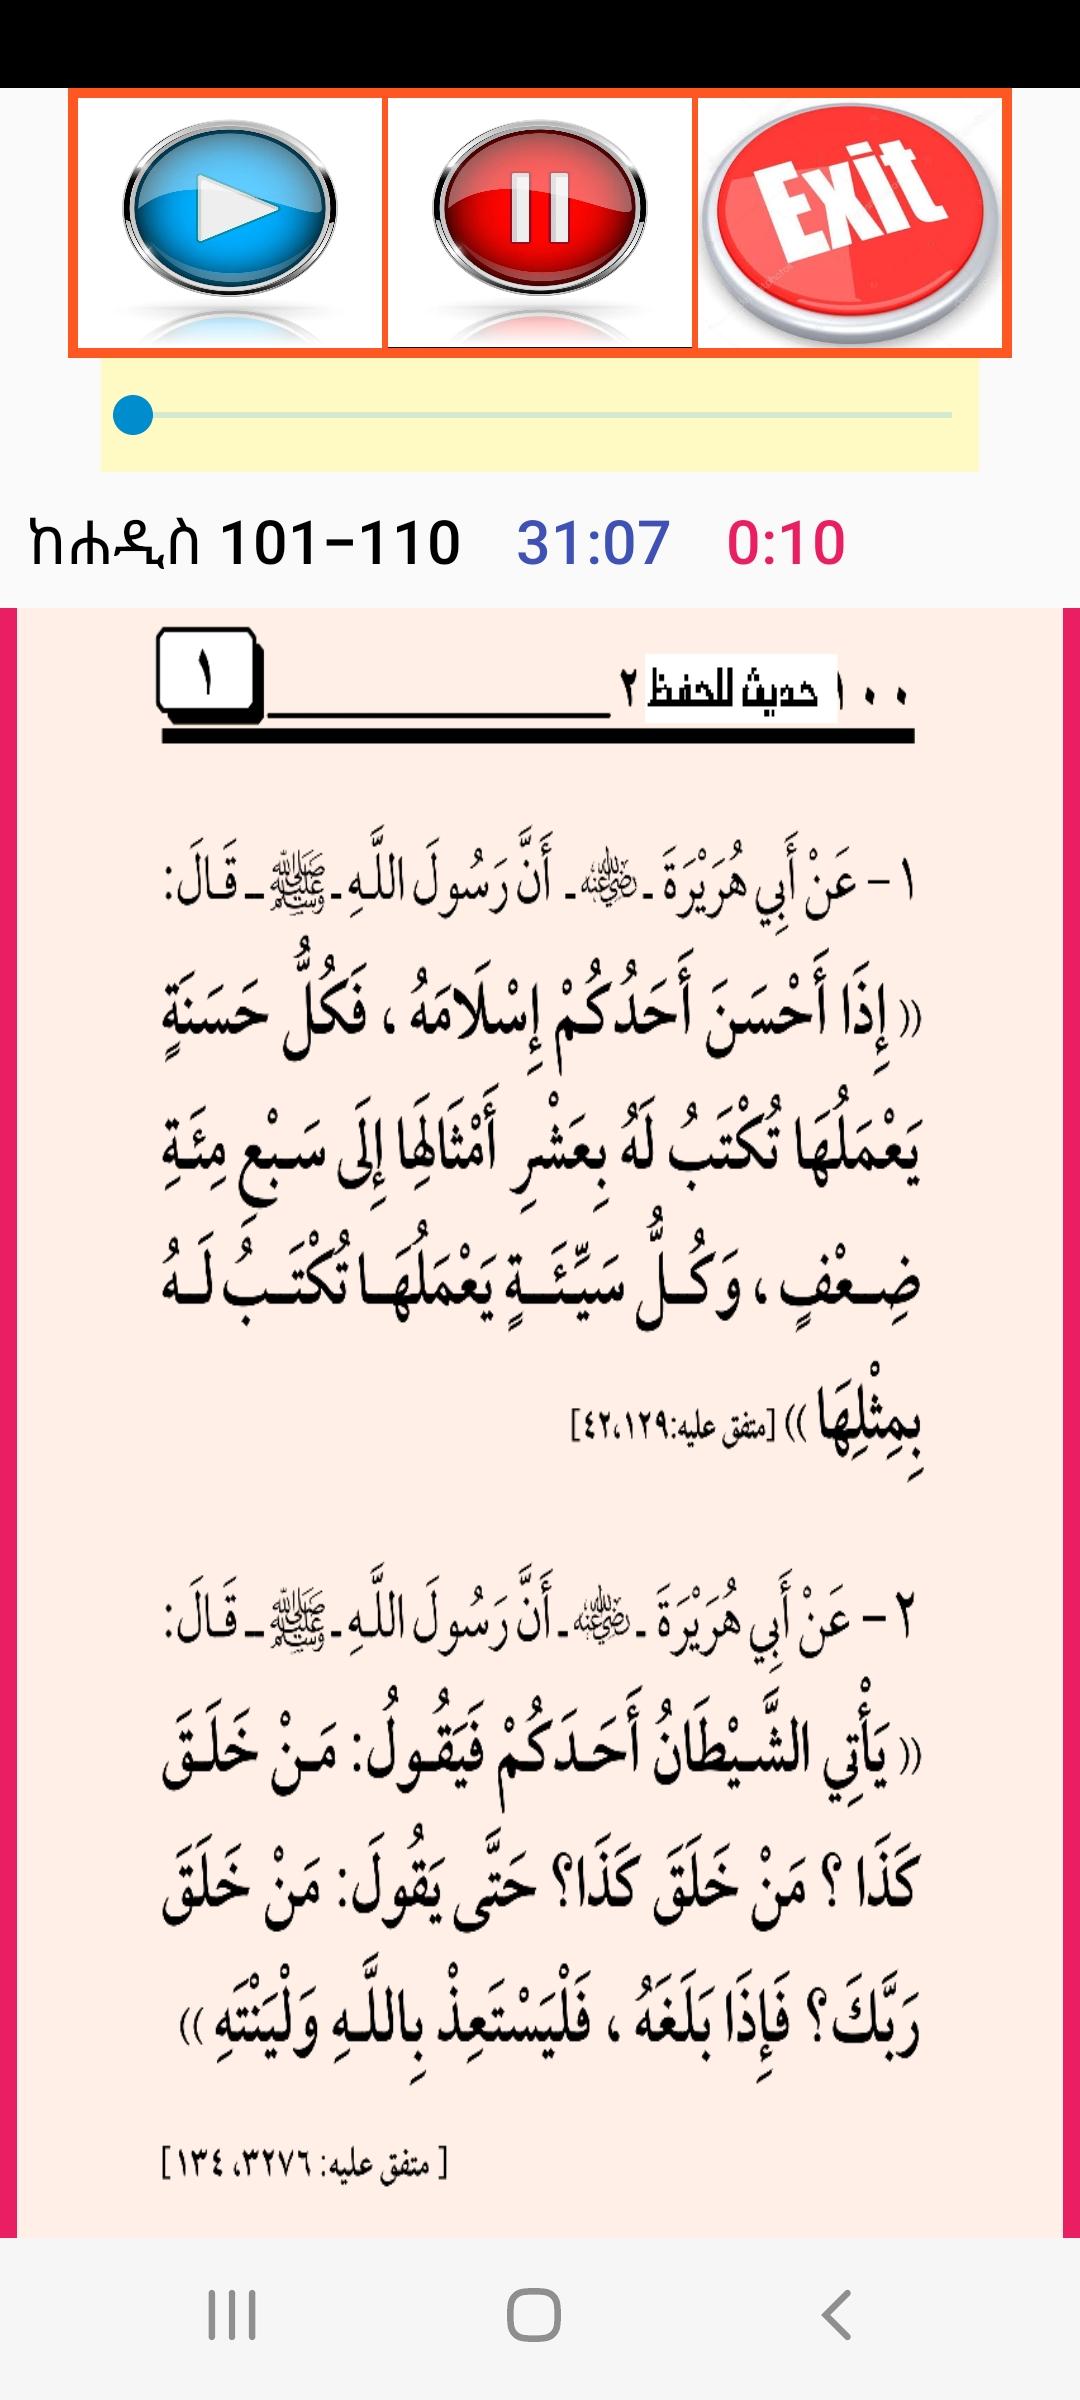 Exit
ከሐዲስ 101-110 31:07 0:10
١
١٠٠ حديث للحفظ ٢
١ - عَنْ أَبِي هُرَيْرَةَ ـ رَضِيَ اللَّهُ عَنْهُ ـ أَنَّ رَسُولَ اللَّهِ ـ ﷺ ـ قَالَ:
(( إِذَا أَحْسَنَ أَحَدُكُمْ إِسْلَامَهُ ، فَكُلُّ حَسَنَةٍ
يَعْمَلُهَا تُكْتَبُ لَهُ بِعَشْرِ أَمْثَالِهَا إِلَى سَبْعِ مِئَةِ
ضِعْفٍ ، وَكُلُّ سَيِّئَةٍ يَعْمَلُهَا تُكْتَبُ لَهُ
بِمِثْلِهَا )) [متفق عليه:٤٢،١٢٩]
٢ - عَنْ أَبِي هُرَيْرَةَ ـ رَضِيَ اللَّهُ عَنْهُ ـ أَنَّ رَسُولَ اللَّهِ ـ ﷺ ـ قَالَ:
(( يَأْتِي الشَّيْطَانُ أَحَدَكُمْ فَيَقُولُ: مَنْ خَلَقَ
كَذَا ؟ مَنْ خَلَقَ كَذَا؟ حَتَّى يَقُولَ: مَنْ خَلَقَ
رَبَّكَ؟ فَإِذَا بَلَغَهُ ، فَلْيَسْتَعِذْ بِاللَّهِ وَلْيَنْتَهِ ))
[ متفق عليه: ٣٢٧٦، ١٣٤]